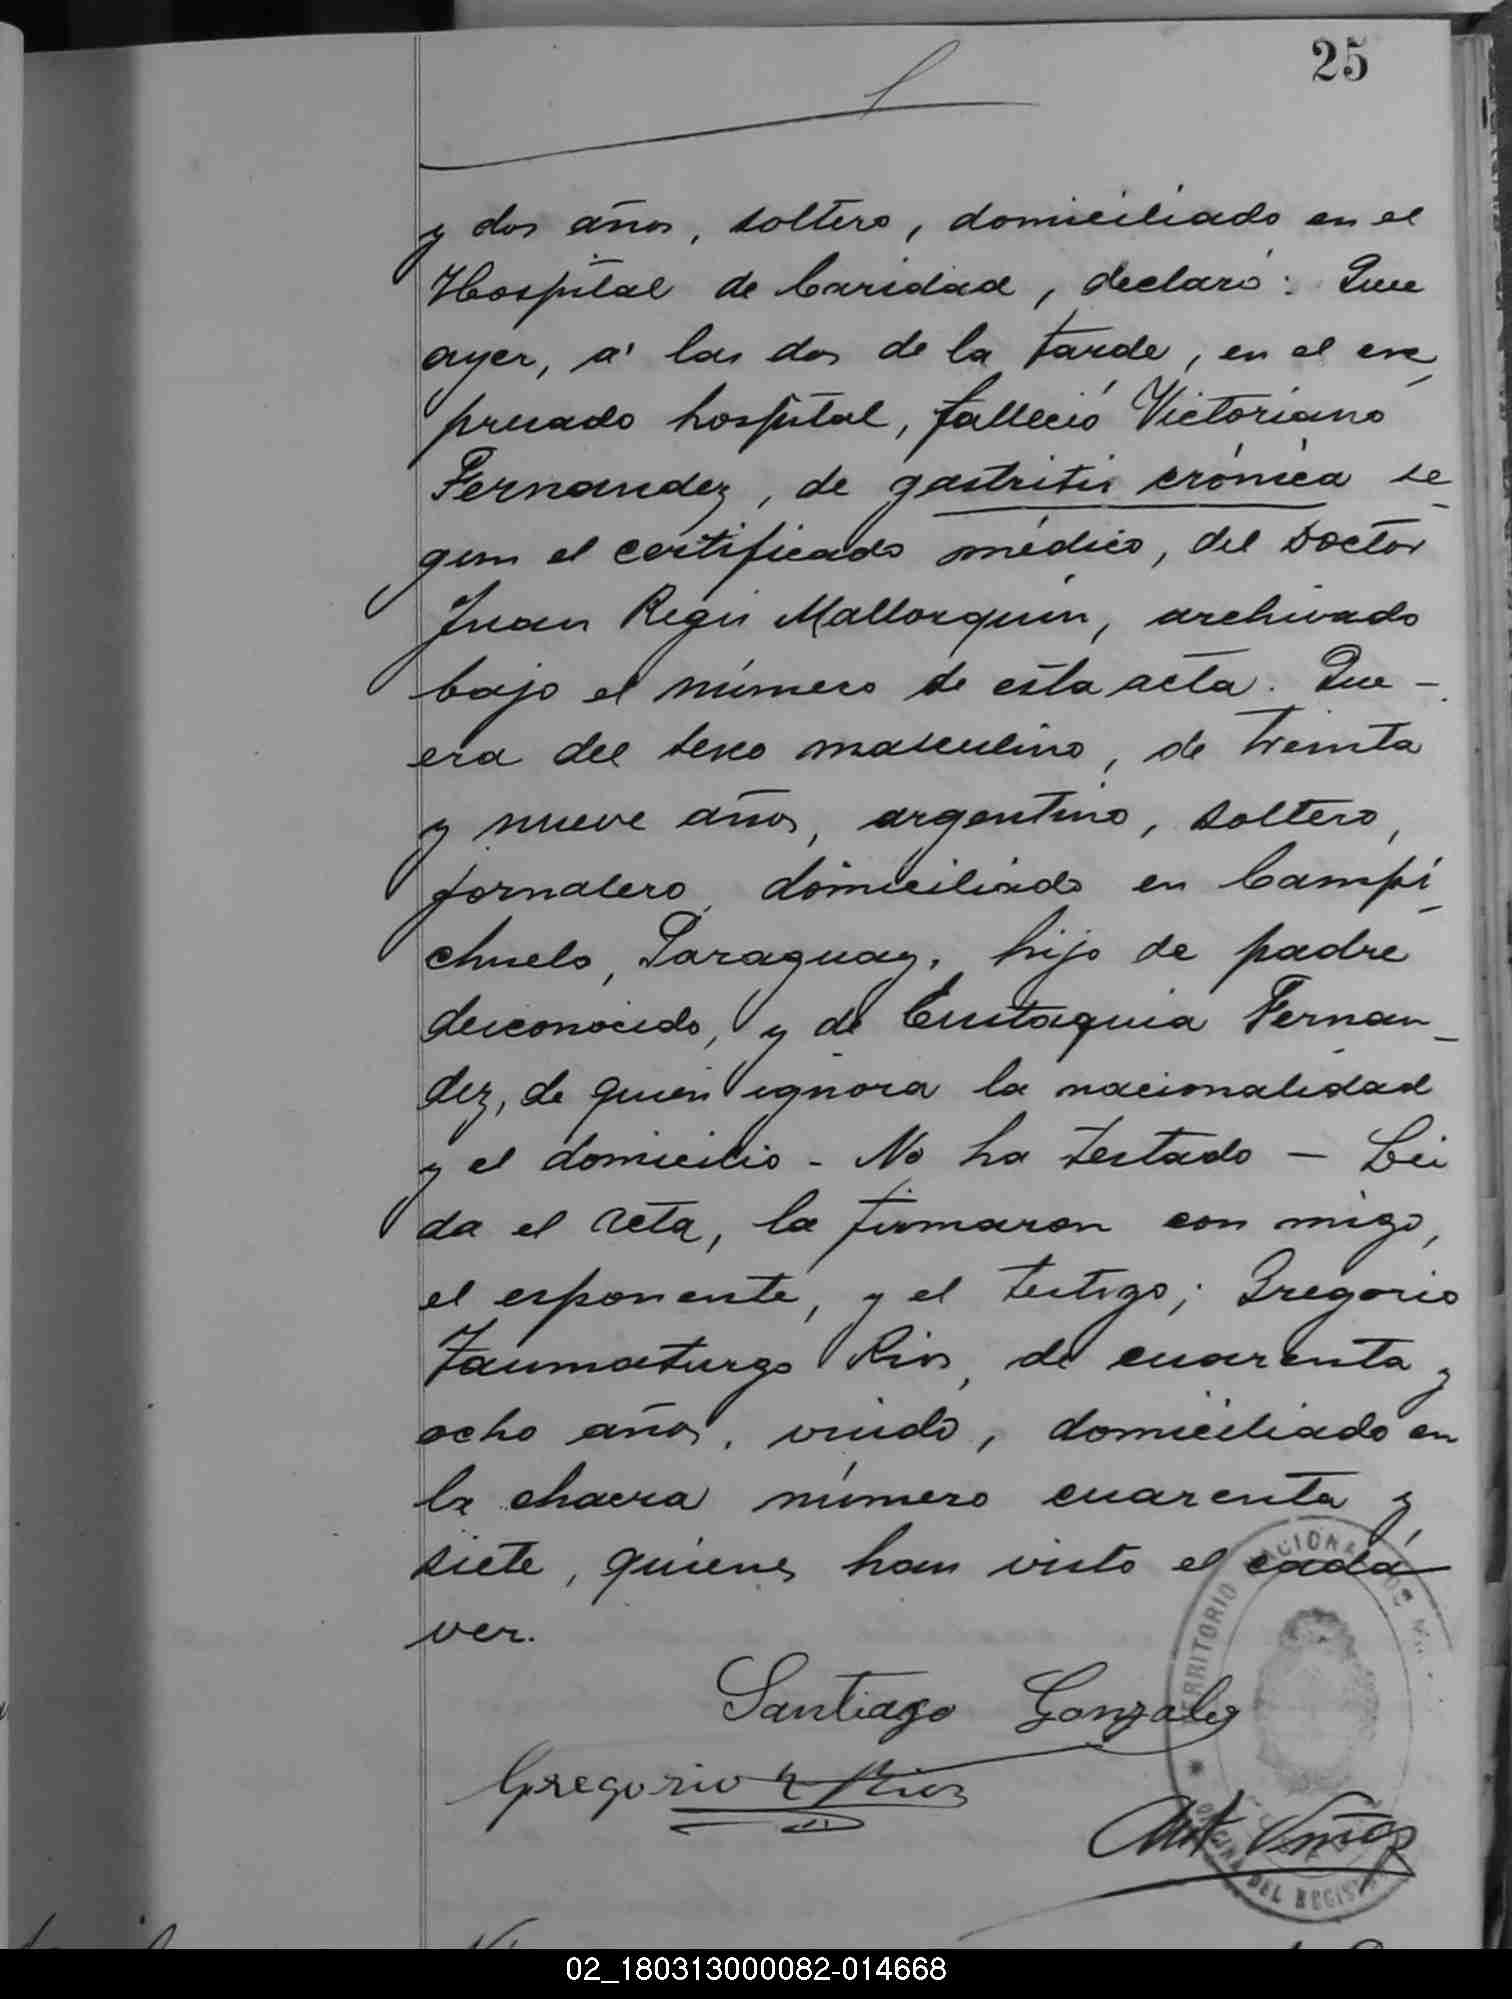 25
y dos años, soltero, domiciliado en el
Hospital de Caridad, declaró: Que
ayer, á las dos de la tarde, en el ex-
presado hospital, falleció Victoriano
Fernandez, de gastritis crónica se-
gun el certificado médico, del Doctor
Juan Regis Mallorquin, archivado
bajo el número de esta acta. Que -
era del sexo masculino, de treinta
y nueve años, argentino, soltero,
jornalero, domiciliado en Campi-
chuelo, Paraguay, hijo de padre
desconocido, y de Eustaquia Fernan-
dez, de quien ignora la nacionalidad
y el domicilio - No ha testado - Lei
da el acta, la firmaron con migo,
el esponente, y el testigo; Gregorio
Taumaturgo Rios, de cuarenta y
ocho años, viudo, domiciliado en
la chacra número cuarenta y
siete, quienes han visto el cadá-
ver.
Santiago Gonzalez
Gregorio T Rios
TERRITORIO NACIONAL DE
OFICINA DEL REGISTRO
02_180313000082-014668